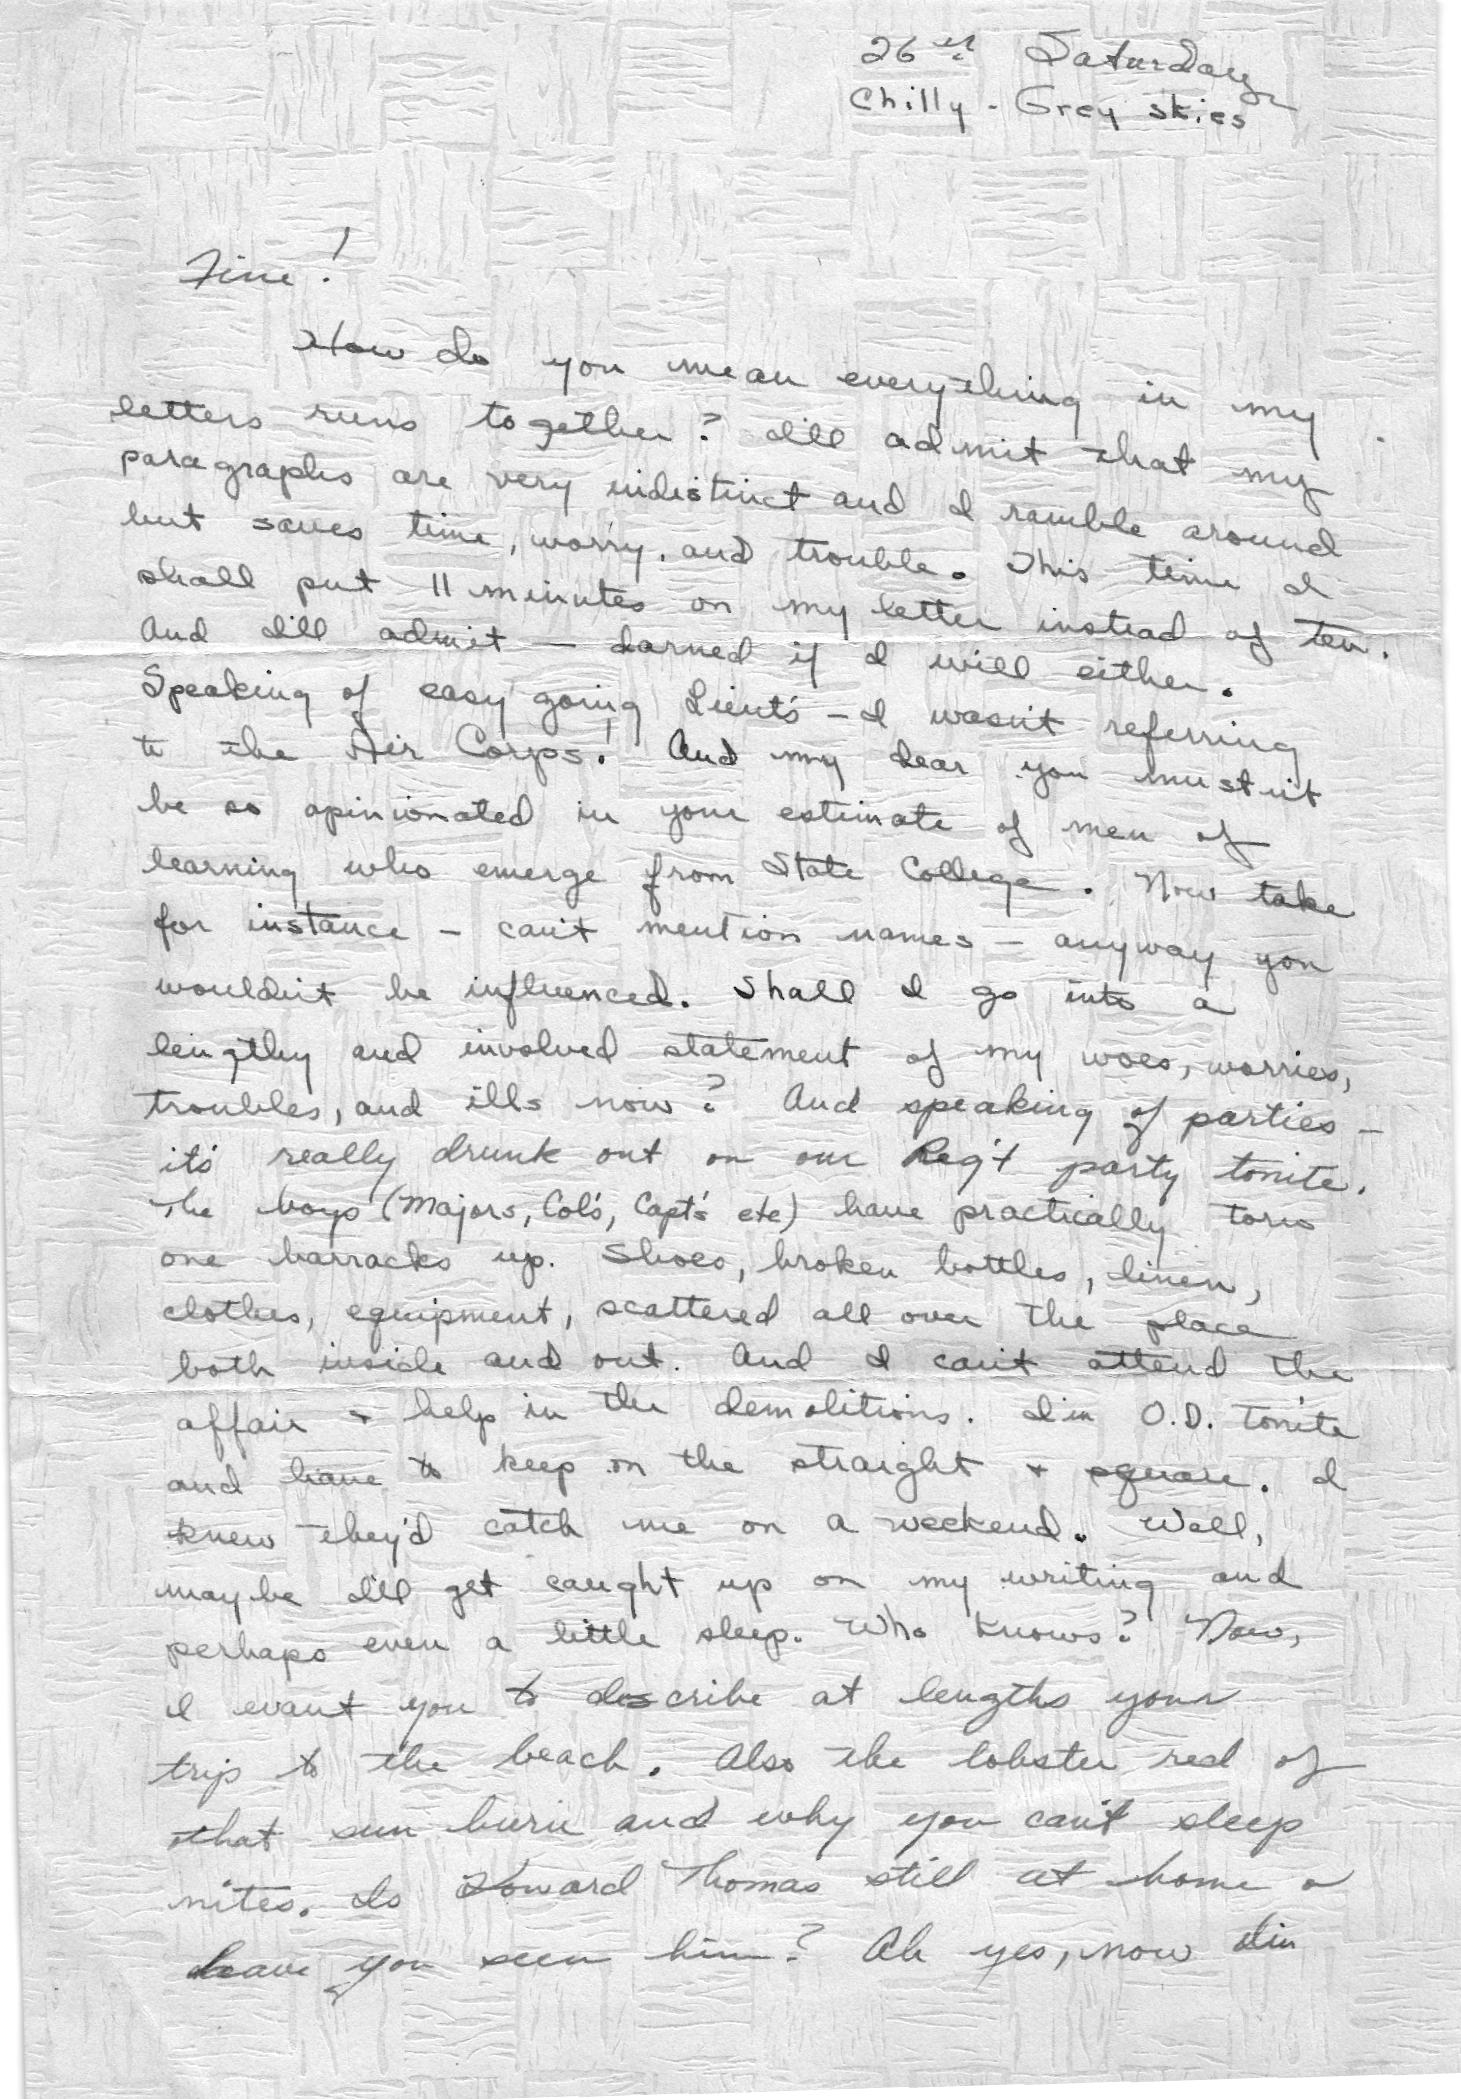 26th Saturday
Chilly - Grey skies
Fine!
How do you mean everything in my
letters runs together? I'll admit that my
paragraphs are very indistinct and I ramble around
but saves time, worry, and trouble. This time I
shall put 11 minutes on my letter instead of ten.
And I'll admit — darned if I will either.
Speaking of easy going Lieut's - I wasn't referring
to the Air Corps! And my dear you mustn't
be so opinionated in your estimate of men of
learning who emerge from State College. Now take
for instance - can't mention names - anyway you
wouldn't be influenced. Shall I go into a
lengthy and involved statement of my woes, worries,
troubles, and ills now? And speaking of parties -
it's really drunk out on our Reg't party tonite.
The boys (Majors, Col's, Capt's etc) have practically torn
one barracks up. Shoes, broken bottles, linen,
clothes, equipment, scattered all over the place
both inside and out. And I can't attend the
affair + help in the demolitions. I'm O.D. tonite
and have to keep on the straight + square. I
knew they'd catch me on a weekend. Well,
maybe I'll get caught up on my writing and
perhaps even a little sleep. Who knows? Now,
I want you to describe at lengths your
trip to the beach. Also the lobster red of
that sun burn and why you can't sleep
nites. Is Howard Thomas still at home or
have you seen him? Ah yes, now I'm